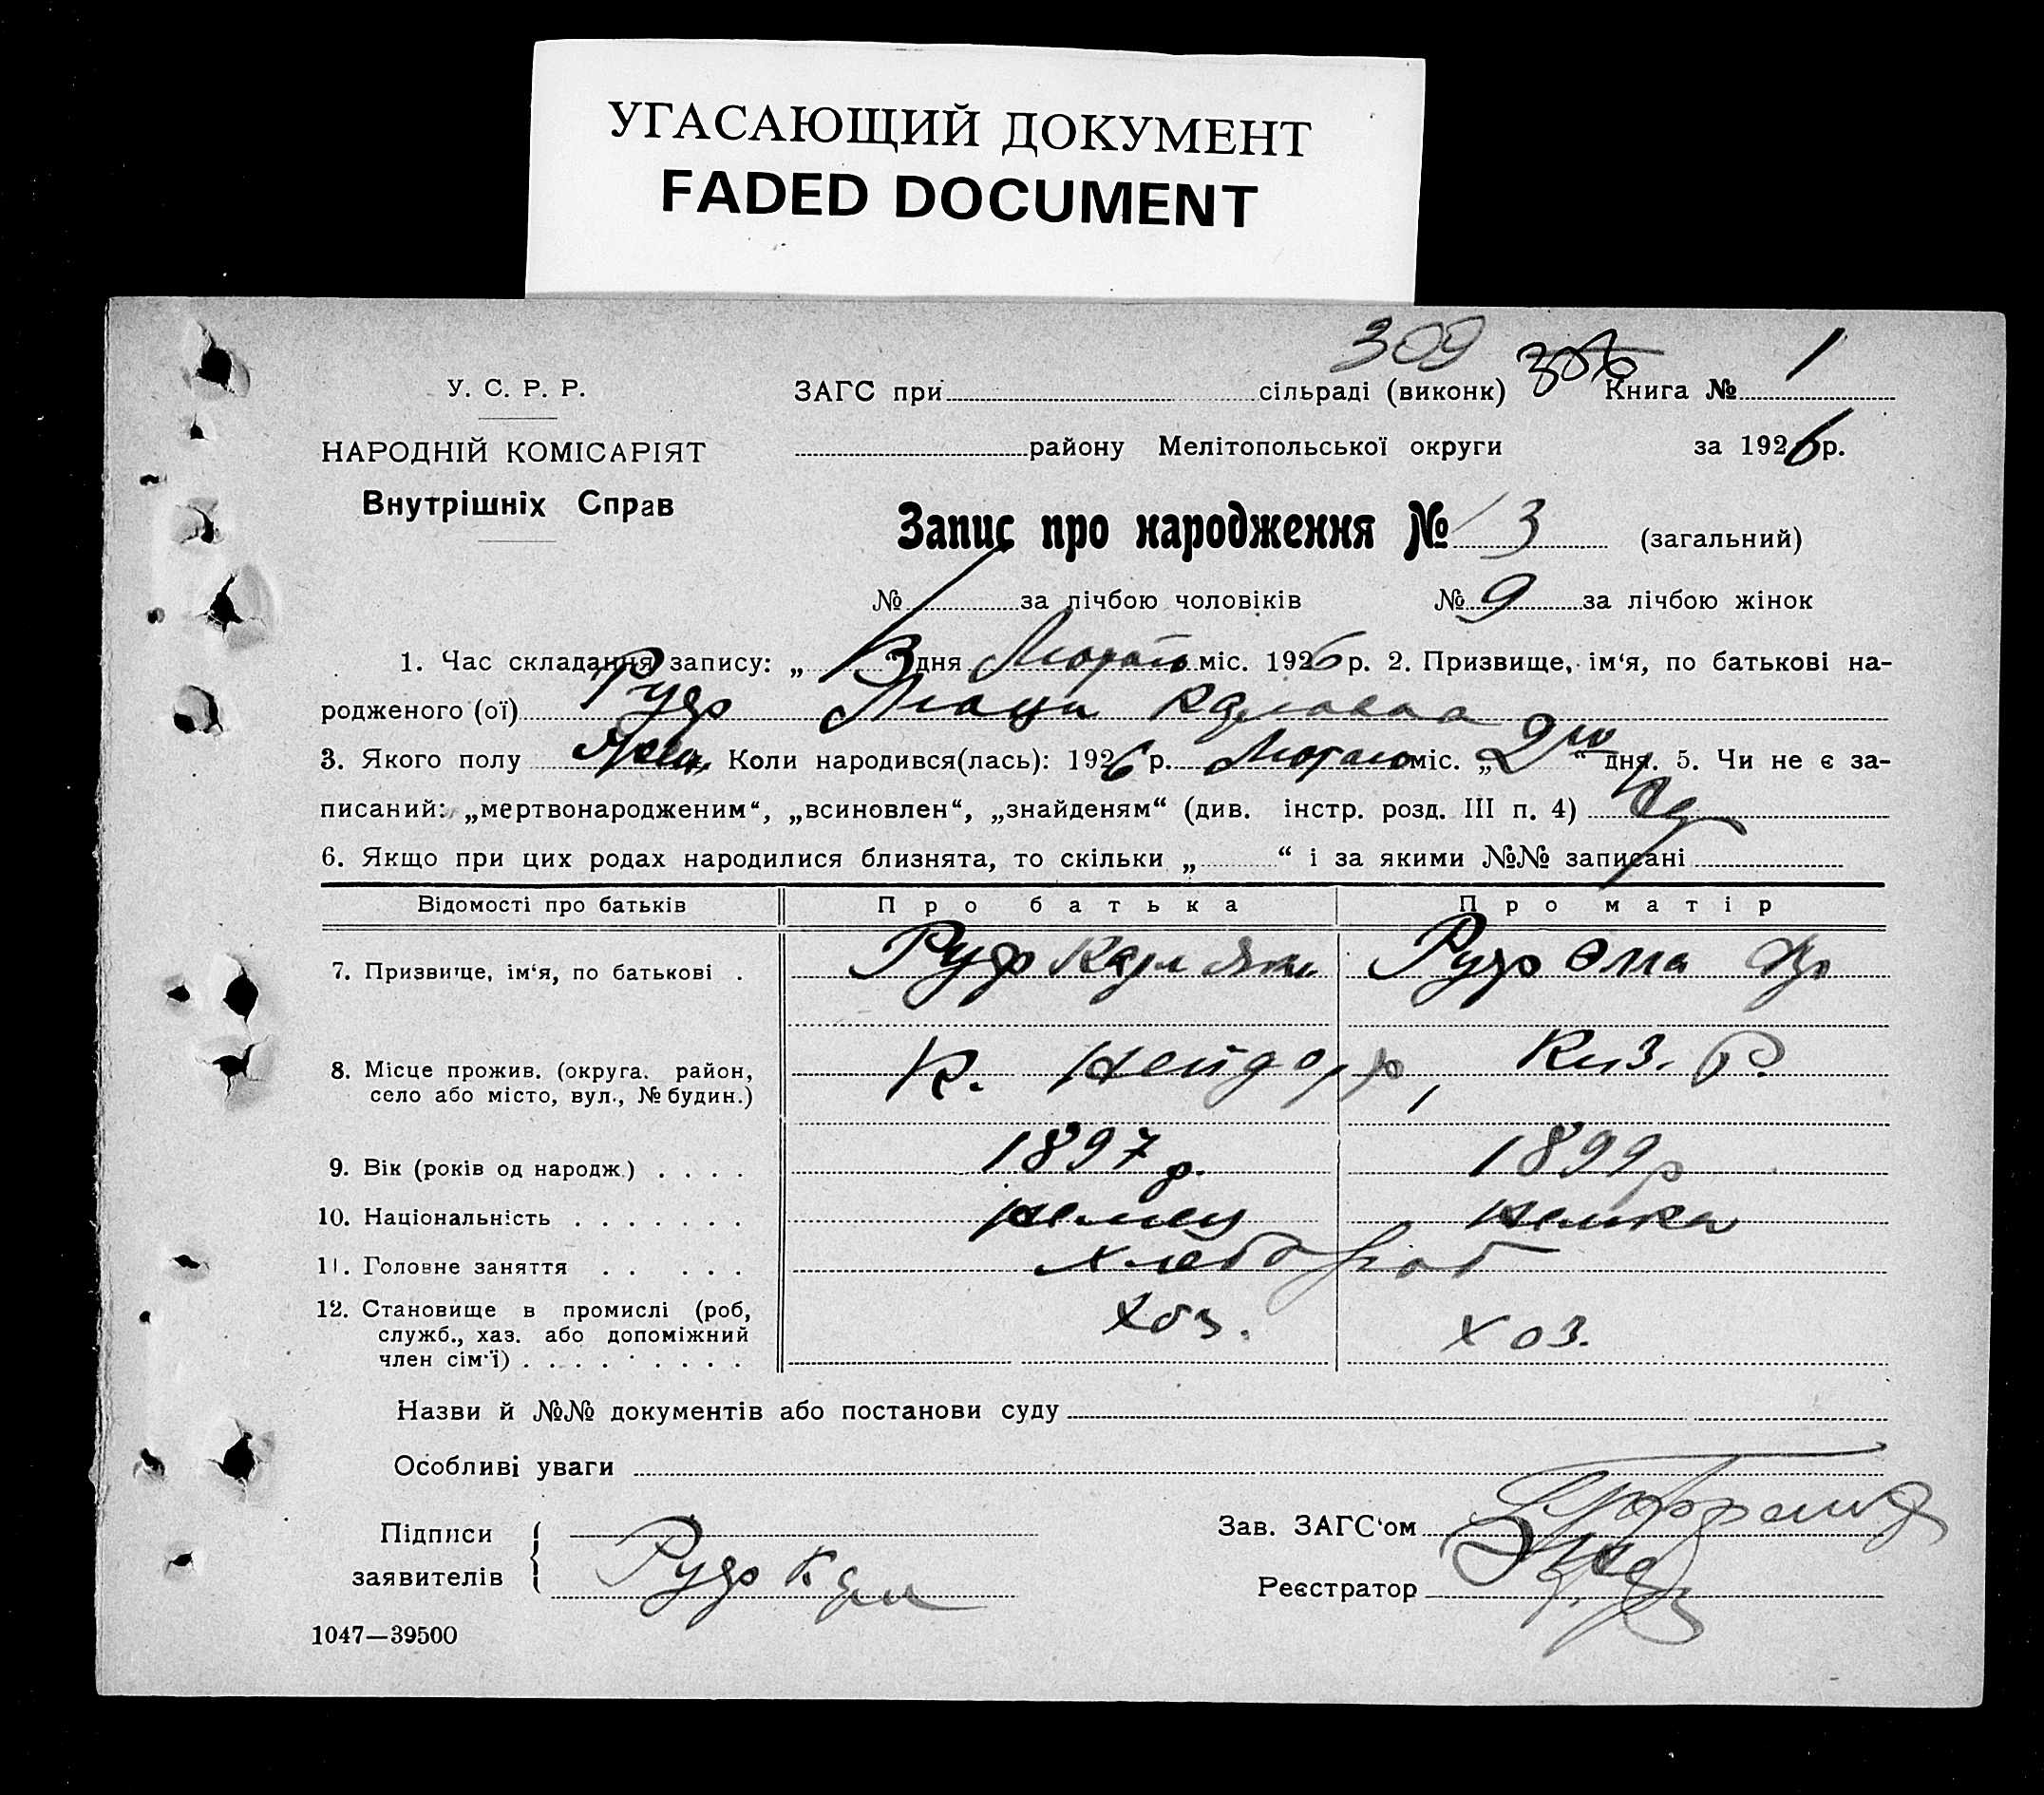 УГАСАЮЩИЙ ДОКУМЕНТ
FADED DOCUMENT
309 306
У. С. Р. Р.
ЗАГС при сільраді (виконк) Книга № 1
НАРОДНІЙ КОМІСАРІЯТ
району Мелітопольської округи за 1926 р.
Внутрішніх Справ
Запис про народження № 13 (загальний)
№ за лічбою чоловіків № 9 за лічбою жінок
1. Час складання запису: „13“ дня Лютого міс. 1926 р. 2. Призвище, ім‘я, по батькові на-
родженого (ої) Руф Карловна
3. Якого полу Жен. Коли народився(лась): 1926 р. Лютого міс. „2го“ дня. 5. Чи не є за-
писаний: „мертвонародженим“, „всиновлен“, „знайденям“ (див. інстр. розд. III п. 4)
6. Якщо при цих родах народилися близнята, то скільки „ “ і за якими №№ записані
Відомості про батьків Про батька Про матір
7. Призвище, ім‘я, по батькові . Руф Карл Руф Эма
8. Місце прожив. (округа. район, К. Нейдорф, Киз. Р.
село або місто, вул., № будин.)
9. Вік (років од народж.) . . . . 1897 р. 1899 р
10. Національність . . . . . . . немец немка
11. Головне заняття . . . . . хлебороб
12. Становище в промислі (роб, хоз. хоз.
служб., хаз. або допоміжний
член сім‘ї) . . . . . . . . .
Назви й №№ документів або постанови суду
Особливі уваги
Підписи
заявителів Руф Карл
Зав. ЗАГС‘ом
Реєстратор
1047—39500